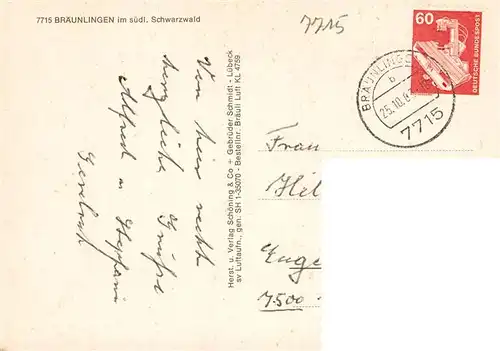 7715 BRÄUNLINGEN im südl. Schwarzwald
7715
60
DEUTSCHE BUNDESPOST
BRÄUNLINGEN
b
25.10.8
7715
Von hier recht
herzliche Grüße
Alfred u Stephani
Herst. u. Verlag Schöning & Co + Gebrüder Schmidt - Lübeck
sv Luftaufn., gen. SH 1-35070 - Bestellnr. Bräuli Luft KL 4759.
Frau
Hil
Enge
7500